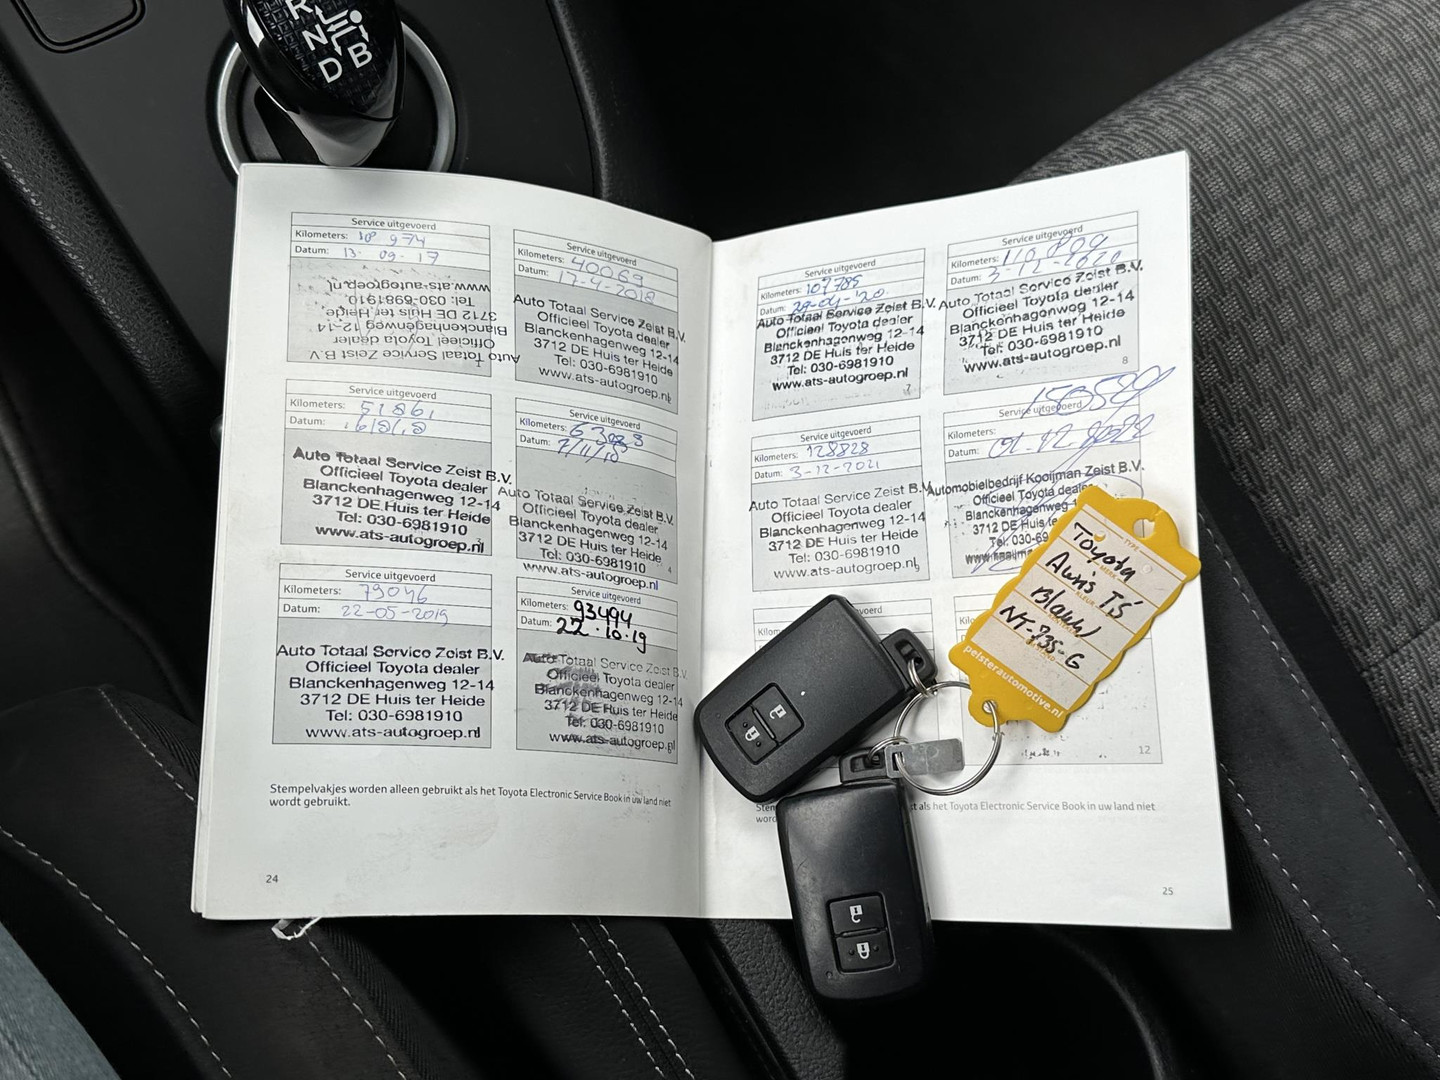 R
N
D B
Service uitgevoerd
Kilometers: 18 974
Datum: 13-09-17
Auto Totaal Service Zeist B.V.
Officieel Toyota dealer
Blanckenhagenweg 12-14
3712 DE Huis ter Heide
Tel: 030-6981910
www.ats-autogroep.nl
1
Service uitgevoerd
Kilometers: 40069
Datum: 17-4-2018
Auto Totaal Service Zeist B.V.
Officieel Toyota dealer
Blanckenhagenweg 12-14
3712 DE Huis ter Heide
Tel: 030-6981910
www.ats-autogroep.nl
Service uitgevoerd
Kilometers: 51861
Datum:
Auto Totaal Service Zeist B.V.
Officieel Toyota dealer
Blanckenhagenweg 12-14
3712 DE Huis ter Heide
Tel: 030-6981910
www.ats-autogroep.nl
3
Service uitgevoerd
Kilometers:
Datum: 7/11/18
Auto Totaal Service Zeist B.V.
Officieel Toyota dealer
Blanckenhagenweg 12-14
3712 DE Huis ter Heide
Tel: 030-6981910
www.ats-autogroep.nl
4
Service uitgevoerd
Kilometers: 79046
Datum: 22-05-2019
Auto Totaal Service Zeist B.V.
Officieel Toyota dealer
Blanckenhagenweg 12-14
3712 DE Huis ter Heide
Tel: 030-6981910
www.ats-autogroep.nl
Service uitgevoerd
Kilometers: 93494
Datum: 22-10-19
Auto Totaal Service Zeist B.V.
Officieel Toyota dealer
Blanckenhagenweg 12-14
3712 DE Huis ter Heide
Tel: 030-6981910
www.ats-autogroep.nl
Stempelvakjes worden alleen gebruikt als het Toyota Electronic Service Book in uw land niet
wordt gebruikt.
24
Service uitgevoerd
Kilometers: 107785
Datum: 29-04-'20
Auto Totaal Service Zeist B.V.
Officieel Toyota dealer
Blanckenhagenweg 12-14
3712 DE Huis ter Heide
Tel: 030-6981910
www.ats-autogroep.nl
7
Service uitgevoerd
Kilometers: 110809
Datum: 3-12-2020
Auto Totaal Service Zeist B.V.
Officieel Toyota dealer
Blanckenhagenweg 12-14
3712 DE Huis ter Heide
Tel: 030-6981910
www.ats-autogroep.nl
8
Service uitgevoerd
Kilometers: 128828
Datum: 3-12-2021
Auto Totaal Service Zeist B.V.
Officieel Toyota dealer
Blanckenhagenweg 12-14
3712 DE Huis ter Heide
Tel: 030-6981910
www.ats-autogroep.nl
9
Service uitgevoerd
Kilometers:
Datum: 01-12-2022
Automobielbedrijf Kooijman Zeist B.V.
Officieel Toyota dealer
Blanckenhagenweg
3712 DE Huis te
Tel: 030-69
Kilom
Datum
12
als het Toyota Electronic Service Book in uw land niet
25
Toyota
Auris TS
Blauw
NF-235-G
pelsterautomotive.nl